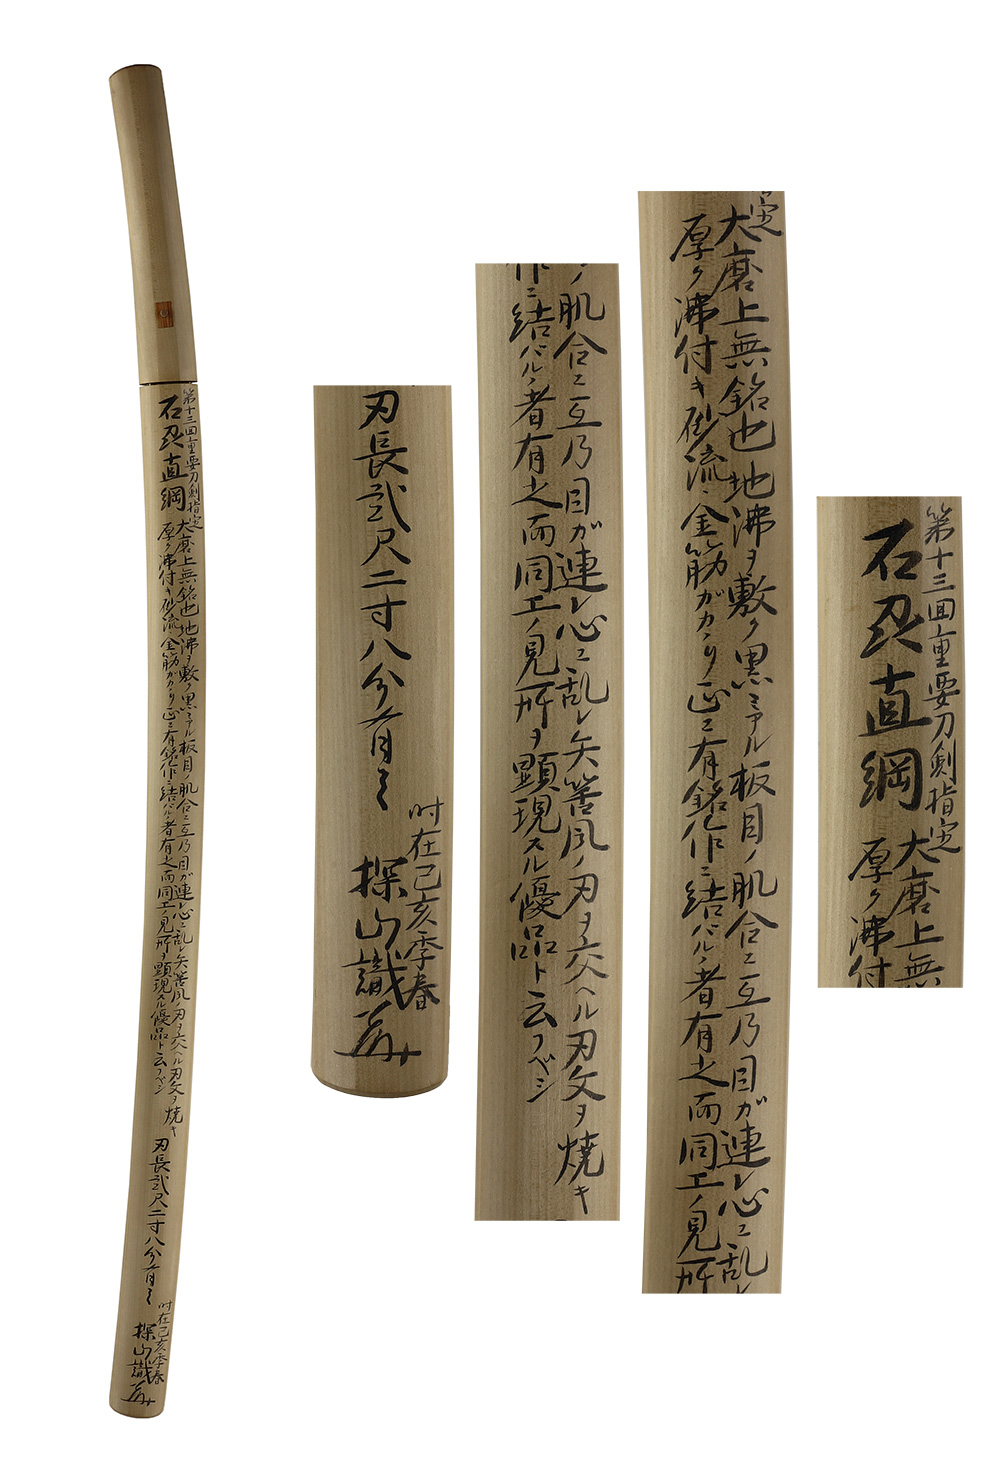 第十三回重要刀剣指定
石州直綱
大磨上無銘也地沸ヲ敷ク黒ミアル板目ノ肌合ニ互乃目ガ連レ心ニ乱レ矢筈風ノ刃ヲ交ヘル刃文ヲ焼キ
厚ク沸付キ砂流シ金筋ガカヽリ正ニ有銘作ニ結バルヽ者有之而同工ノ見所ヲ顕現スル優品ト云フベシ
刃長弐尺二寸八分有之
時在己亥季春
探山識
第十三回重要刀剣指定
石州直綱
大磨上無
厚ク沸付
定
大磨上無銘也地沸ヲ敷ク黒ミアル板目ノ肌合ニ互乃目ガ連レ心ニ乱レ
厚ク沸付キ砂流シ金筋ガカヽリ正ニ有銘作ニ結バルヽ者有之而同工ノ見所
ノ肌合ニ互乃目ガ連レ心ニ乱レ矢筈風ノ刃ヲ交ヘル刃文ヲ焼キ
作ニ結バルヽ者有之而同工ノ見所ヲ顕現スル優品ト云フベシ
刃長弐尺二寸八分有之
時在己亥季春
探山識